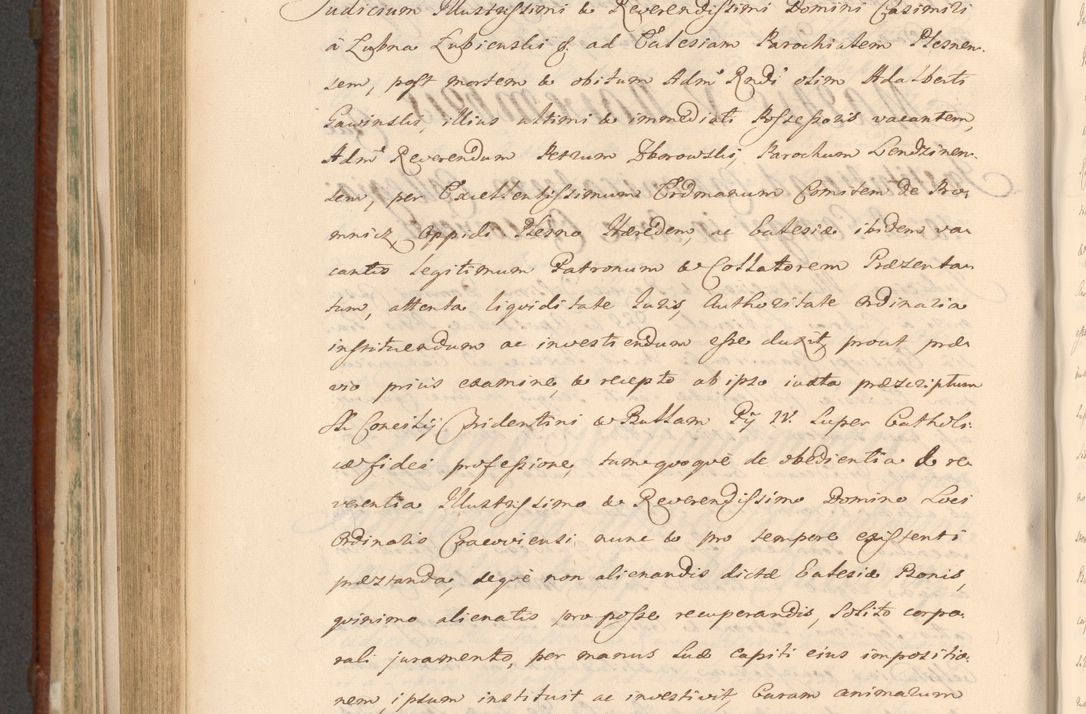 Judicium Illustrissimi & Reverendissimi Domini Casimiri
à Łubna Łubienski &. ad Ecclesiam Parochialem Plesnen-
sem, post mortem & obitum Admᵐ Rndi olim Adalberti
Gawinski, illius ultimi & immediati Possessoris vacantem,
Admᵐ Reverendum Petrum Zborowski, Parochum Lendzinen-
sem, per Excellentissimum Erdmanum Comitem de Pro-
mnitz Oppidi Plesno Hæredem, ac Ecclesiæ ibidem va-
cantis legitimum Patronum & Collatorem Præzenta-
tum, attenta liquiditate Juris, Authoritate Ordinaria
instituendum ac investiendum esse duxit, prout præ-
vio prius examine, & recepto ab ipso iuxta præscriptum
S. Concilij Tridentini & Bullam Pij IV. super Catholi-
cæ fidei professione, tum quoque de obedientia & re-
verentia Illustrissimo & Reverendissimo Domino Loci
Ordinario Cracoviensi nunc & pro tempore existenti
præstanda, deque non alienandis dictæ Ecclesiæ Bonis,
quinimo alienatis pro posse recuperandis, solito corpo-
rali juramento, per manus suæ capiti eius impositio-
nem, ipsum instituit ac investivit, Curam animarum